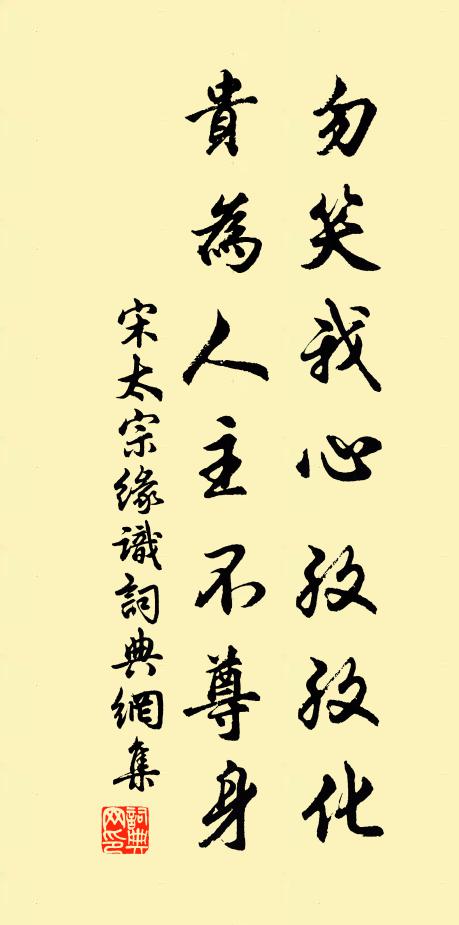 勿笑我心孜孜化
貴為人主不尊身
宋太宗緣識詞典網集
詞典網印